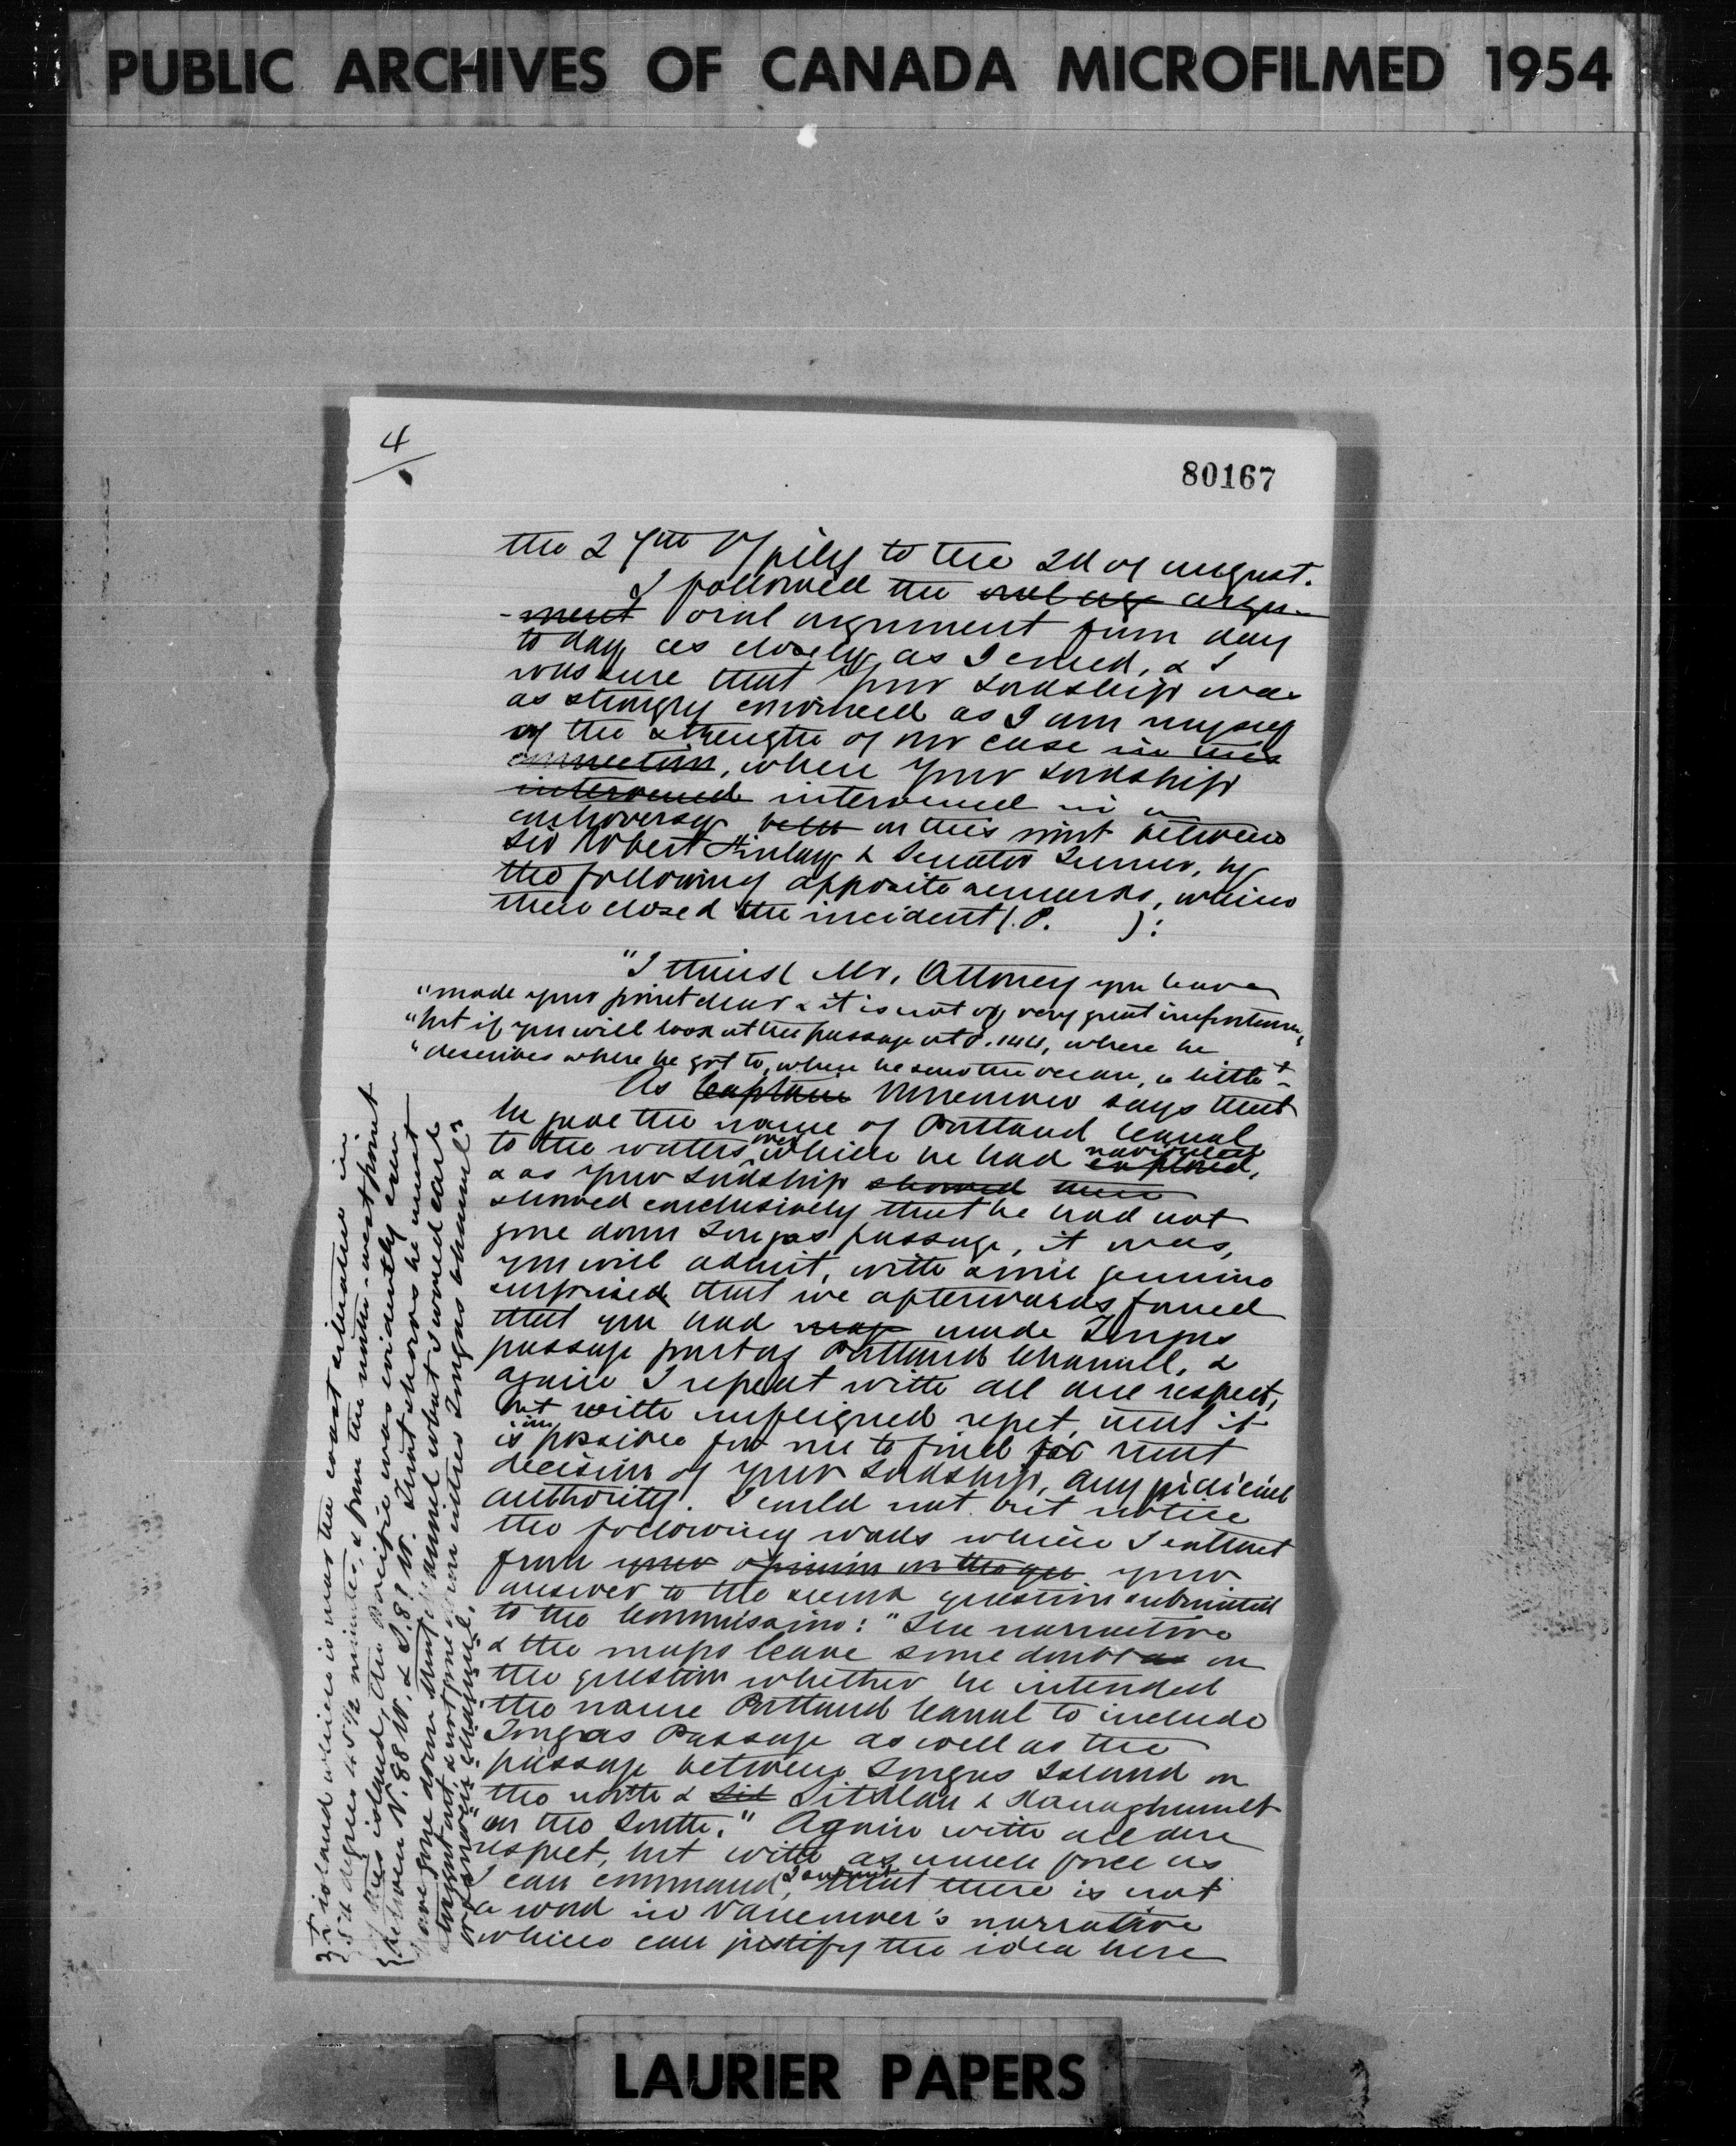 PUBLIC ARCHIVES OF CANADA MICROFILMED 1954
4
80167
the 27th of july to the 2d of august.
I followed the oral arg argu-
-ment oral argument from day
to day as closely as I could, & I
was sure that your Lordship was
as strongly convinced as I am myself
of the strength of our case in this
connection, when your Lordship
intervened intervened in a
controversy betw on this point between
Sir Robert Finlay & Senator Turner, by
the following apposite remarks, which
then closed the incident (. P. ):
"I think Mr. Attorney you have
"made your point clear & it is not of very great importance,
"but if you will look at the passage at P. 144, where he
"describes where he got to, when he saw the ocean, a little +
As Captain Vancouver says that
he gave the name of Portland Canal
to the waters over which he had explored, navigated
& as your Lordship showed then
showed conclusively that he had not
gone down Tongas passage, it was,
you will admit, with some genuine
surprised that we afterwards found
that you had made Tongas
passage part of Portland Channel, &
again I repeat with all due respect,
but with unfeigned regret, that it
is impossible for me to find for that
decision of your Lordship, any judicial
authority. I could not but notice
the following words which I extract
from your opinion on the que your
answer to the second question submitted
to the Commission: "The narrative
& the maps leave some doubt as on
the question whether he intended
the name Portland Canal to include
Tongas Passage as well as the
passage between Tongas Island on
the north & Sit Sitklan & Kanaghunut
on the South." Again with all due
respect, but with as much force as
I can command, I submit that there is not
a word in Vancouver's narrative
which can justify the idea here
+ island which is near the coast situation in
54 degrees 45½ minutes, & from the north-west point
of this island, the Pacific was evidently seen
between N. 88 W. & S. 81 W. That shows he must
have gone down that channel what I would call
straight out, & not gone down into Tongas Channel
or narrow channel."
LAURIER PAPERS